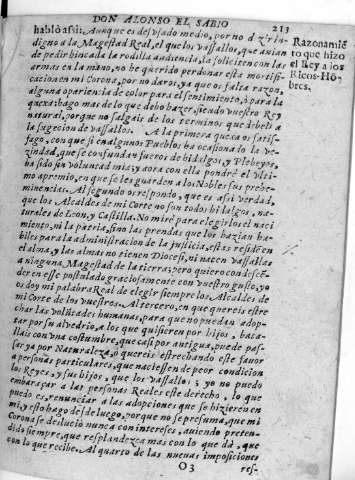 DON ALONSO EL SABIO
213
hablò assi: Aunque es desusado medio, por no dezir in-
digno a la Magestad Real, el que los vassallos, que auian
de pedir hincada la rodilla audiencia, la soliciten con las
armas en la mano, no he querido perdonar esta mortifi-
cacion en mi Corona, por no daros, ya que os falta razon,
alguna apariencia de color para el sentimiento, ò para la
quexa: hago mas de lo que debo hazer, siendo vuestro Rey
natural, porque no salgais de los terminos que debeis a
la sugecion de vassallos. A la primera quexa os satis-
fago, con que si en algunos Pueblos ha ocasionado la ve-
zindad, que se confundan fueros de hidalgos, y Plebeyos,
ha sido sin voluntad mia; y aora con ella pondrè el vlti-
mo apremio, en que se les guarden a los Nobles sus prehe-
minencias. Al segundo os respondo, que es assi verdad,
que los Alcaldes de mi Corte no son todos hidalgos, na-
turales de Leon, y Castilla. No mirè para elegirlos el naci
miento, ni la patria, sino las prendas que los hazian ha-
biles para la administracion de la justicia, estas residẽ en
el alma, y las almas no tienen Diocesi, ni nacen vassallas
a ninguna Magestad de la tierra; pero quiero condescẽ-
der en esse postulado graciosamente con vuestro gusto, yo
os doy mi palabra Real de elegir siempre los Alcaldes de
mi Corte de los vuestros. Al tercero, en que quereis estre
char las volũtades humanas, para que no puedan adop-
tar por su alvedrio, a los que quisieren por hijos, bata-
llais con vna costumbre, que casi por antigua, puede pas-
sar ya por Naturaleza, ò quereis estrechando este favor
a personas particulares, que naciessen de peor condicion
los Reyes, y sus hijos, que los vassallos; y yo no puedo
embaraçar a las personas Reales este derecho, lo que
puedo es, renunciar a las adopciones que se hizieren en
mi, y esto hago desde luego, porque no se presuma, que mi
Corona se deslució nunca con intereses, auiendo preten-
dido siempre, que resplandezca mas con lo que dà, que
con lo que recibe. Al quarto de las nueuas imposiciones
O3
res-
Razonamiẽ
to que hizo
el Rey a los
Ricos-Hõ-
bres.